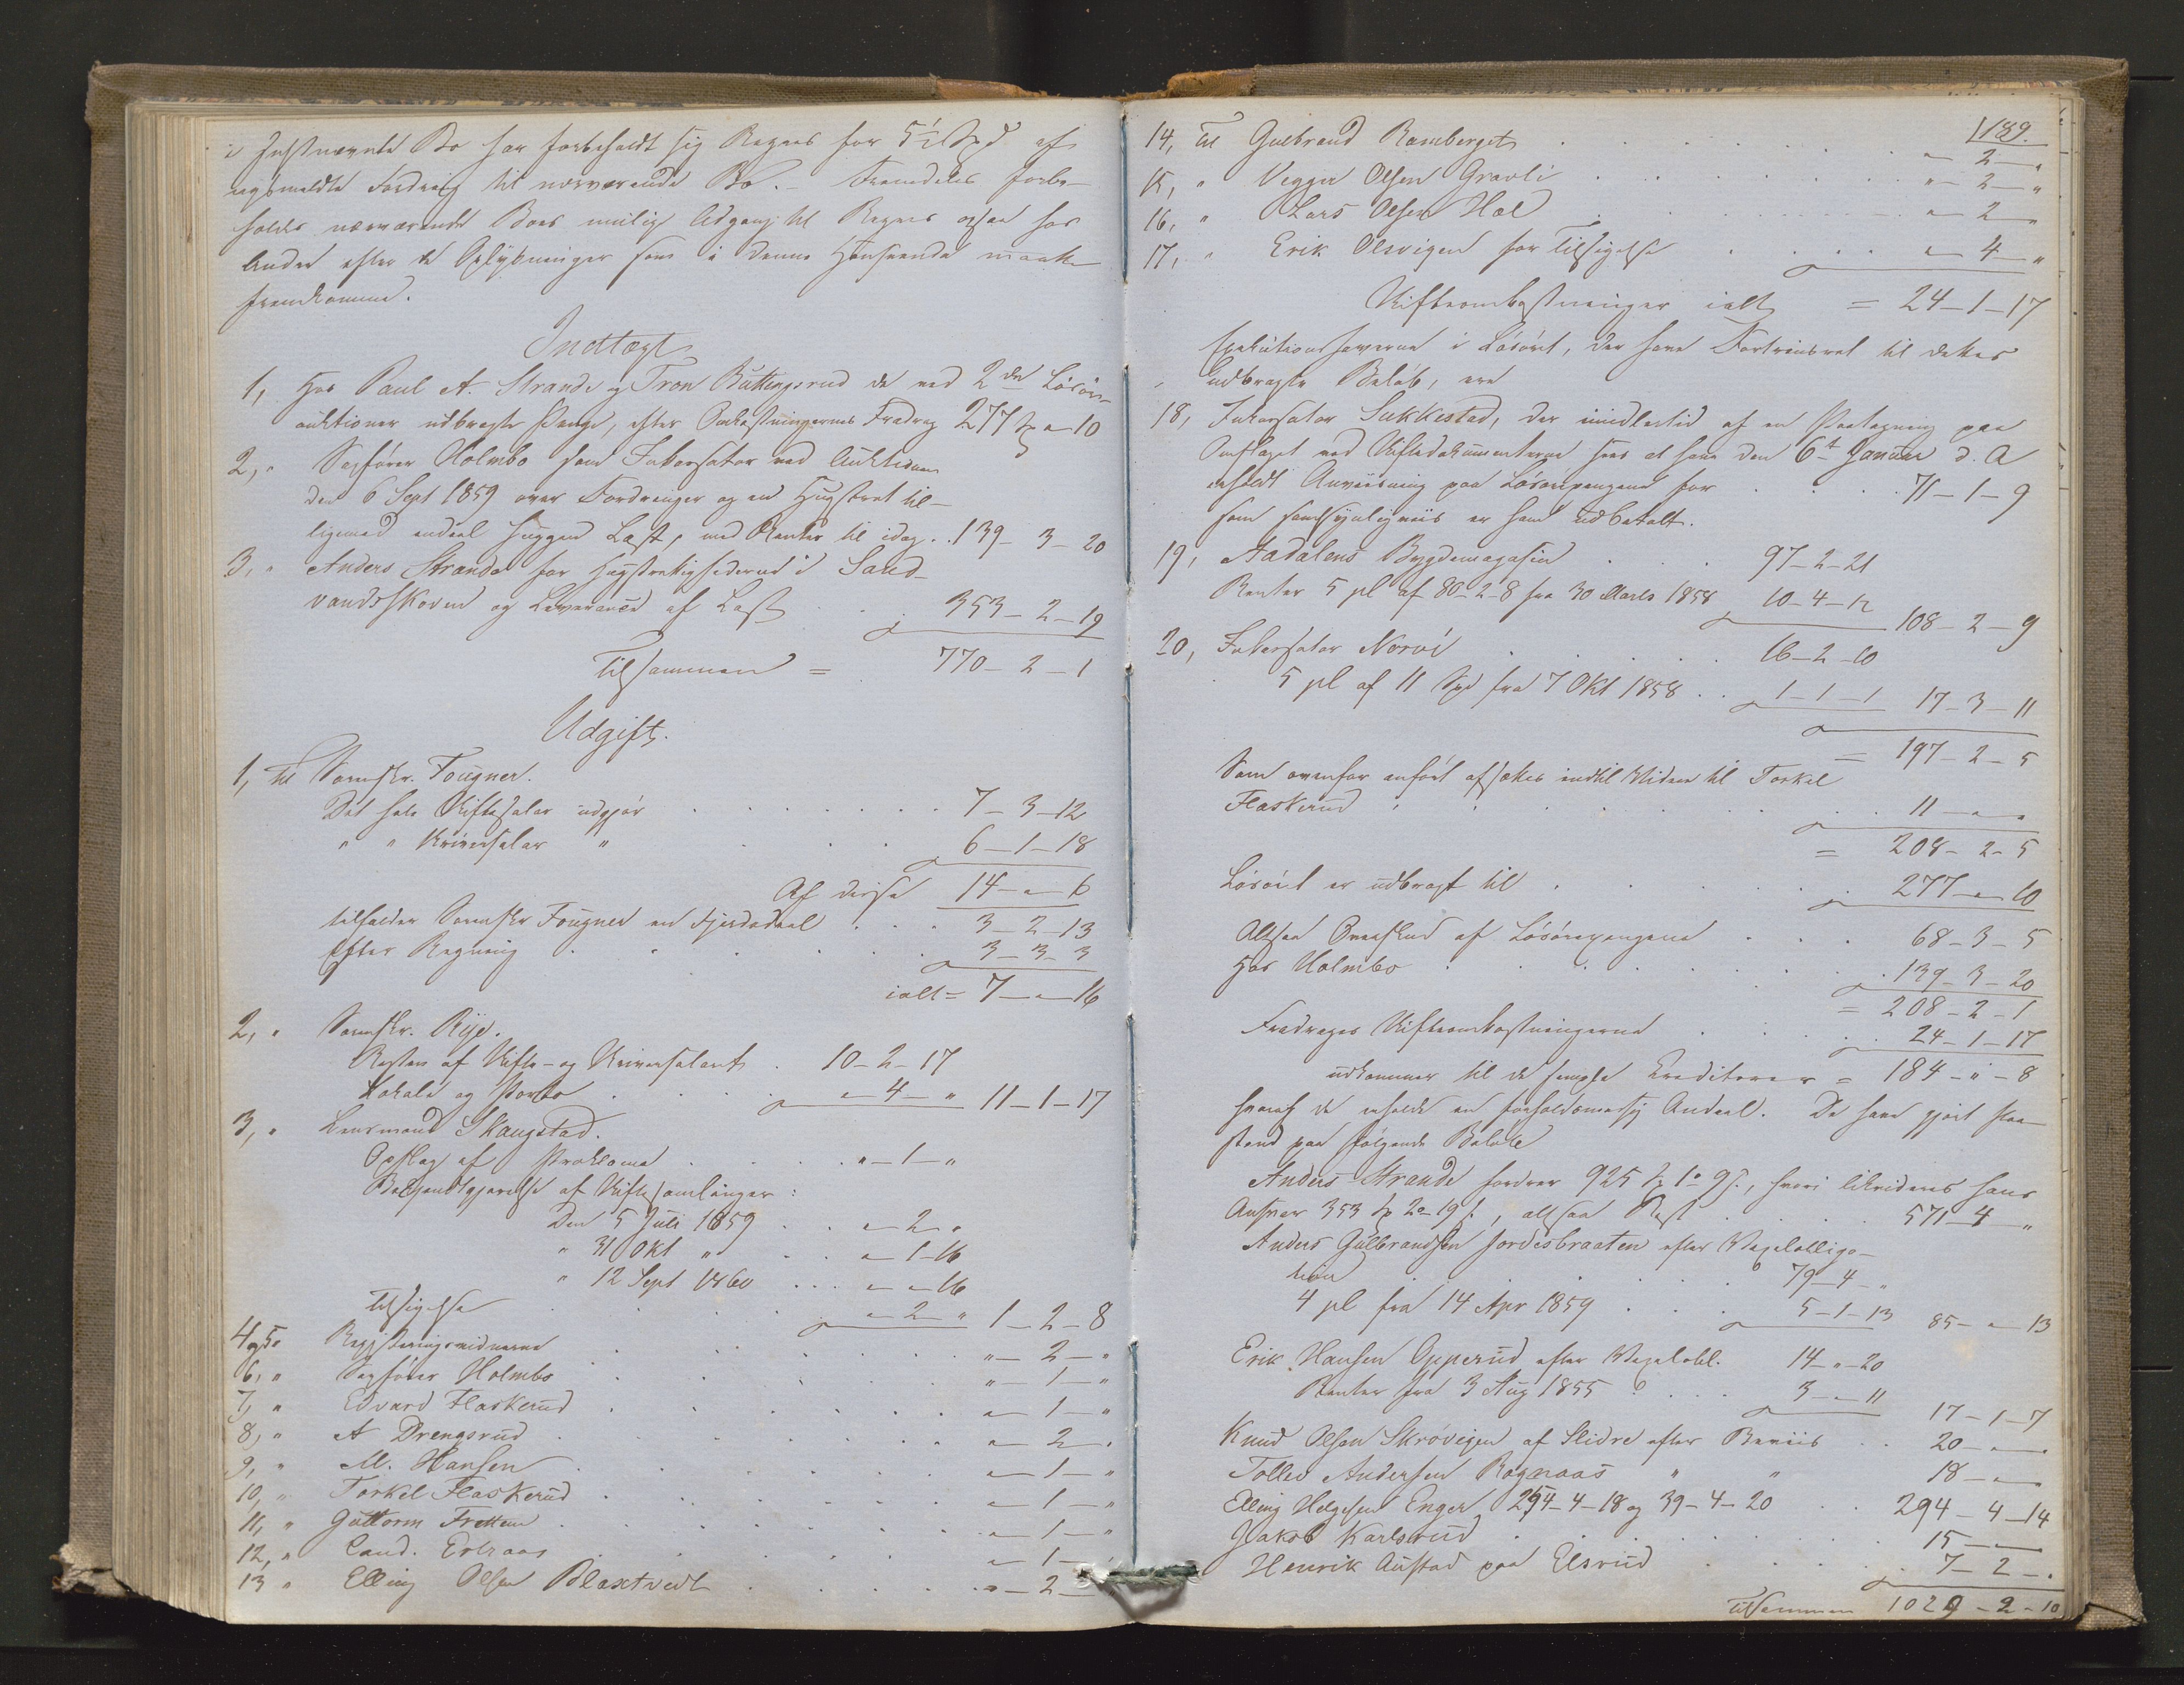 i sidstnævnte Bo har forbeholdt sig Regres for 5½ Spd af
nysmeldte Fordring til nærværende Bo. – Fremdeles forbe-
holdes nærværende Boes mulige Adgang til Regres ogsaa hos
Andre efter de Oplysninger som i denne Henseende maatte
fremkomme.
Indtægt
1, Hos Paul A. Strande og Tron Buttingsrud de ved 2de Løsøre-
auktioner udbragte Penge, efter Omkostningernes Fradrag 277 Sp " 10
2, " Sagfører Holmbo som Inkassator ved Auktionen
den 6 Sept 1859 over Fordringer og en Hugstret til-
ligemed endeel huggen Last, med Renter til idag . . 139 – 3 – 20
3, " Anders Strande for Hugstrettigheden i Sand-
vandsskoven og Leverance af Last . . 353 – 2 – 19
Tilsammen = 770 – 2 – 1
Udgift.
1, Til Sorenskr. Fougner.
Det hele Skiftesalær udgjør . . . 7 – 3 – 12
" " Skriversalær " . . . 6 – 1 – 18
Af disse 14 – " – 6
tilfalder Sorenskr Fougner en Fjerdedeel . . . 3 – 2 – 13
Efter Regning . . . 3 – 3 – 3
ialt = 7 – " – 16
2, " Sorenskr. Rye.
Resten af Skifte- og Skriversalæret . 10 – 2 – 17
Lokale og Porto . . . " – 4 – " 11 – 1 – 17
3, " Lensmand Skaugstad.
Opslag af Proklama . . . " – 1 – "
Bekjendtgjørelse af Skiftesamlinger:
Den 5 Juli 1859 . . " – 2 – "
" 31 Okt " . . " – 1 – 16
" 12 Sept 1860 . . . " – " – 16
Tilsigelse . . . " – 2 – " 1 – 2 – 8
4 og 5 " Registreringsvidnerne . . . " – 2 – "
6, " Sagfører Holmbo . . . " – 1 – "
7, " Edvard Flaskerud . . . " – 1 – "
8, " A Drengsrud . . . " – 2 – "
9, " M. Hansen . . . " – 1 – "
10, " Torkel Flaskerud . . . " – 1 – "
11, " Guttorm Frettem . . . " – 1 – "
12, " Cand. . . . " – 1 – "
13 " Elling Olsen . . . " – 2 – "
189.
14, Til Gulbrand Ramberget . . . " – 2 – "
15, " Vegger Olsen Gravli . . . " – 2 – "
16, " Lars Olsen Hol . . . " – 2 – "
17, " Erik Olsvigen for Tilsigelse . . . " – 4 – "
Skifteomkostninger ialt = 24 – 1 – 17
Exekutionshaverne i Løsøret, der have Fortrinsret til dettes
udbragte Beløb, ere
18, Inkassator Sukkestad, der imidlertid af en Paategning paa
Omslaget ved Skiftedokumenterne sees at have den 6te Januar d. A
erholdt Anviisning paa Løsørepengene for . . . 71 – 1 – 9
som sandsynligviis er ham udbetalt.
19, Aadalens Bygdemagasin . . . 97 – 2 – 21
Renter 5 pCt af 80 – 2 – 8 fra 30 Marts 1858 10 – 4 – 12 108 – 2 – 9
20, Inkassator Norvi . . . 16 – 2 – 10
5 pCt af 11 Spd fra 7 Okt 1858 . . 1 – 1 – 1 17 – 3 – 11
= 197 – 2 – 5
Som ovenfor anført afsættes indtil Videre til Torkel
Flaskerud . . . 11 – " – "
= 208 – 2 – 5
Løsøret er udbragt til . . . 277 – " – 10
Altsaa Overskud af Løsørepengene . . . 68 – 3 – 5
Hos Holmbo . . . 139 – 3 – 20
= 208 – 2 – 1
Fradrages Skifteomkostningerne . . . 24 – 1 – 17
udkommer til de simple Creditorer = 184 – " – 8
hvoraf de erholde en forholdsmæssig Andeel. De have gjort Paa-
stand paa følgende Beløb
Anders Strande fordrer 925 Sp 1 " 9 s., hvori likvideres hans
Ansvar 353 Sp 2 " 19 s., altsaa Rest . . . 571 – 4 – "
Anders Gulbrandsen Jordesbraaten efter
. . . 79 – 4 – "
4 pCt fra 14 Apr 1859 . . . 5 – 1 – 13 85 – " – 13
Erik Hansen Opperud efter . 14 – " – 20
Renter fra 3 Aug 1855 . . . 3 – " – 11 17 – 1 – 7
Knud Olsen Skrøvigen af Slidre efter Beviis . . 20 – " – "
Tollev Andersen Rognaas " " 18 – " – "
Elling Helgesen Enger 254 – 4 – 18 og 39 – 4 – 20 . . 294 – 4 – 14
Jakob Karlsrud . . . 15 – " – "
Henrik Austad paa Elsrud . . . 7 – 2 – "
Tilsammen 1029 – 2 – 10